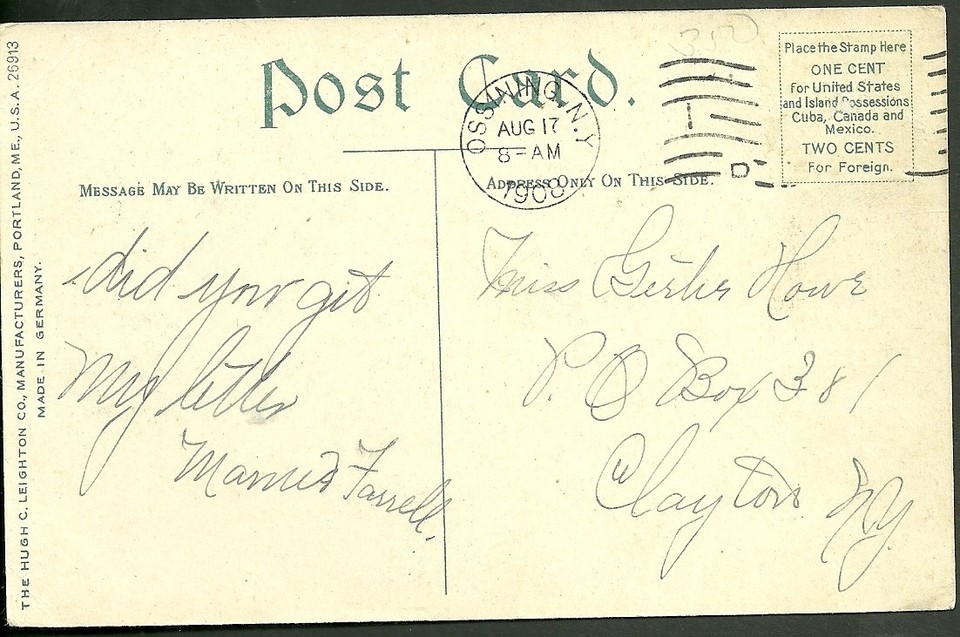 THE HUGH C. LEIGHTON CO., MANUFACTURERS, PORTLAND, ME., U.S.A. 26913
MADE IN GERMANY.
Post Card.
OSSINING, N.Y.
AUG 17
8-AM
1908
D
Place the Stamp Here
ONE CENT
for United States
and Island Possessions
Cuba, Canada and
Mexico.
TWO CENTS
For Foreign.
MESSAGE MAY BE WRITTEN ON THIS SIDE.
did your git
My letter
Farrell.
ADDRESS ONLY ON THIS SIDE.
Miss Howe
P. O Box 381
Clayton NY